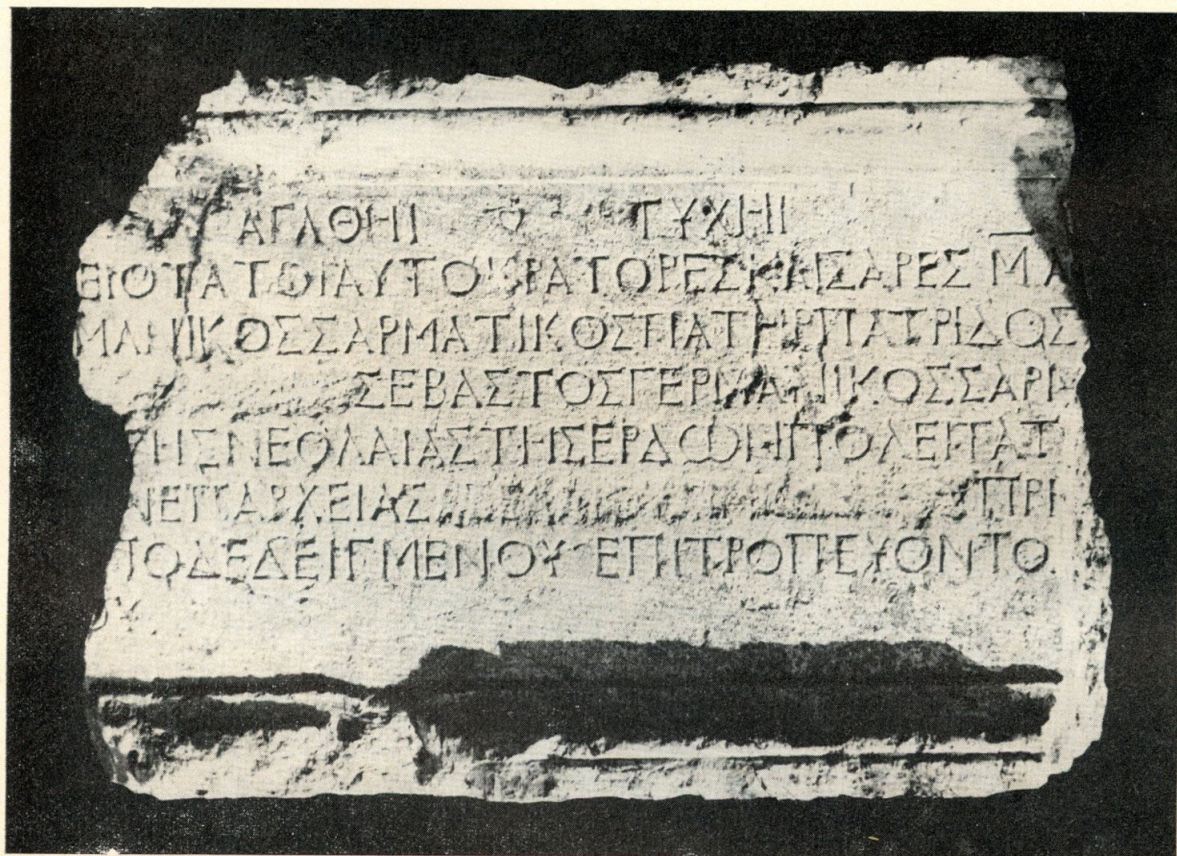 ΑΓΑΘΗΙ ΤΥΧΗΙ
ΕΙΟΤΑΤΟΙ ΑΥΤΟΚΡΑΤΟΡΕΣ ΚΑΙΣΑΡΕΣ ΜΑ
ΜΑΝΙΚΟΣ ΣΑΡΜΑΤΙΚΟΣ ΠΑΤΗΡ ΠΑΤΡΙΔΟΣ
ΣΕΒΑΣΤΟΣ ΓΕΡΜΑΝΙΚΟΣ ΣΑΡΜ
ΗΣ ΝΕΟΛΑΙΑΣ ΤΗ ΣΕΡΔΩΝ ΠΟΛΕΙ
ΕΠΑΡΧΕΙΑΣ ΠΡΕ
ΠΟΔΕΔΕΙΓΜΕΝΟΥ ΕΠΙΤΡΟΠΕΥΟΝΤΟ